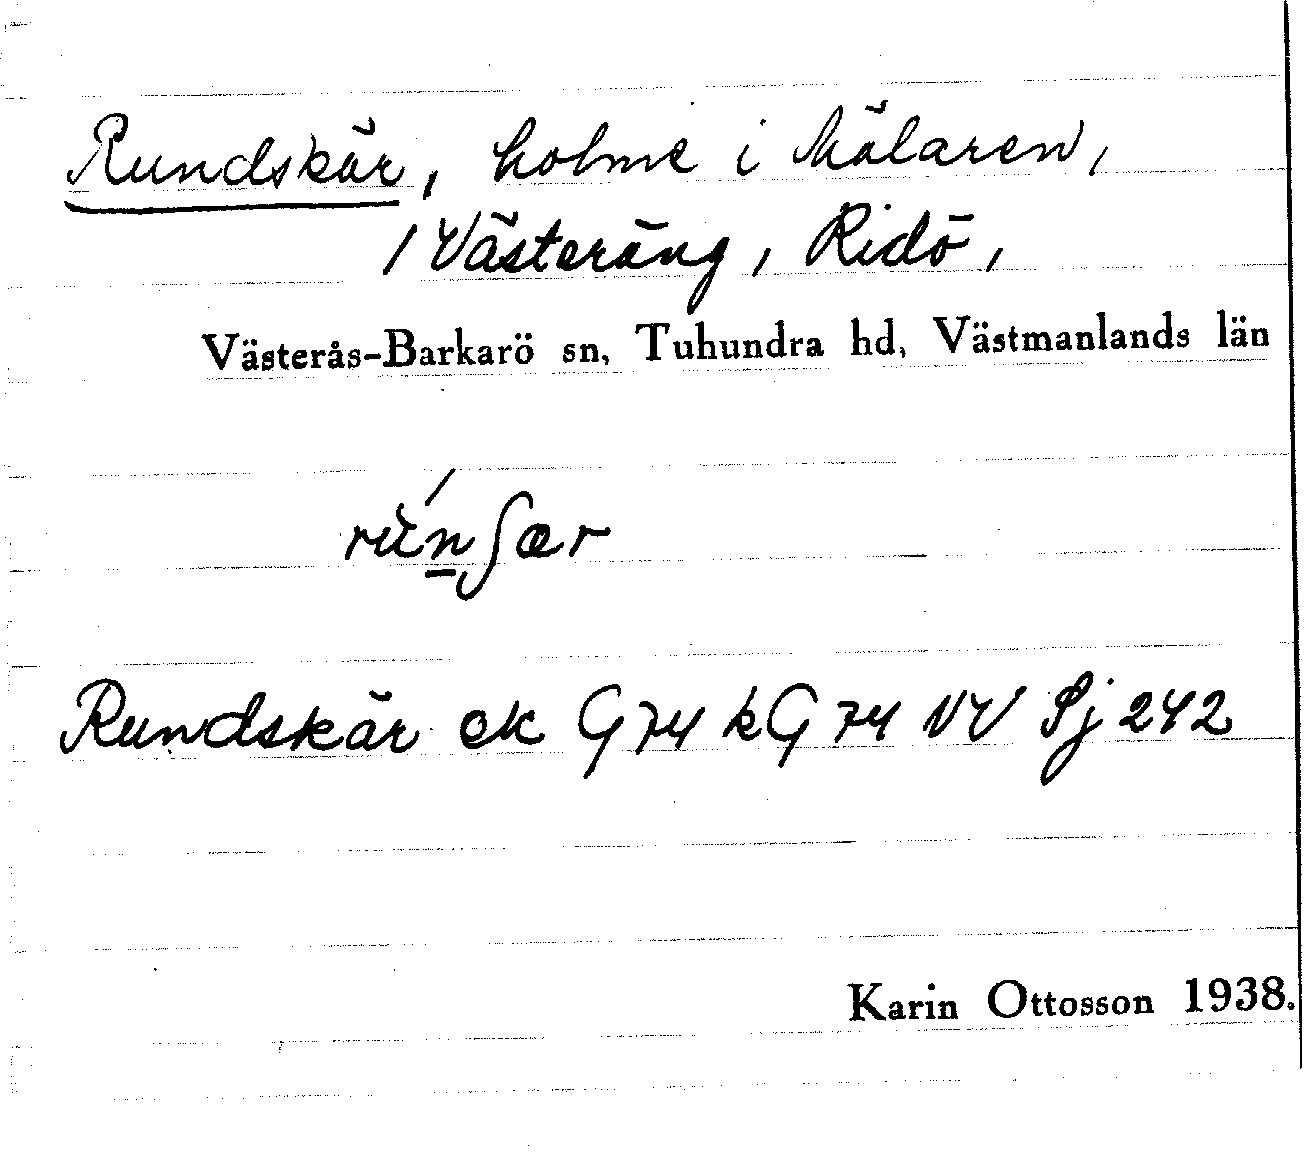 Rundskär, holme i Mälaren,
/ Västeräng, Ridö,
Västerås-Barkarö sn, Tuhundra hd, Västmanlands län
rùńʃær
Rundskär ek G74 kG 74 NV Sj 242
Karin Ottosson 1938.